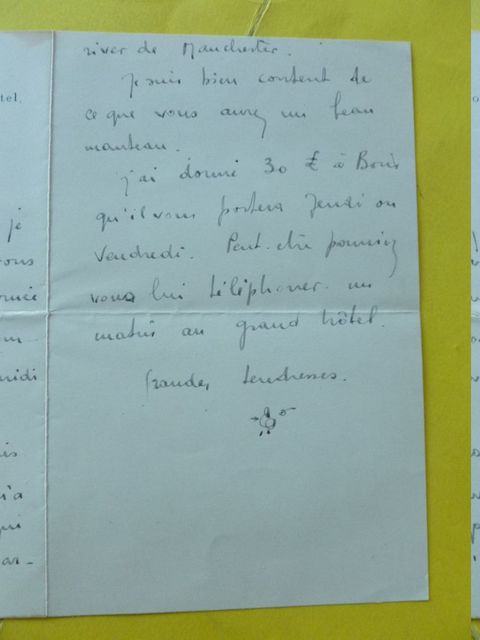 tel.
river de Manchester.
Je suis bien content de
ce que vous aurez un beau
manteau.
J'ai donné 30 £ à Boris
qu'il vous portera Jeudi ou
Vendredi. Peut-être pourriez
vous lui téléphoner un
matin au grand hôtel.
Grandes tendresses.
je
vous
midi
n'a
qui